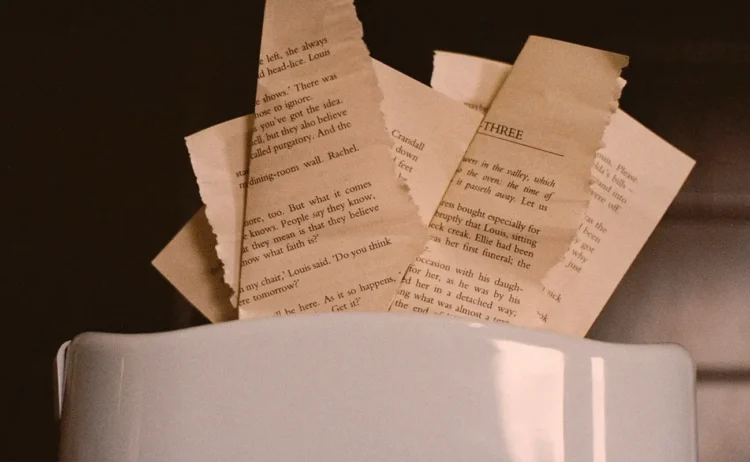 left, she always
head-lice. Louis
shows.' There was
to ignore.
you've got the idea.
but they also believe
called purgatory. And the
dining-room wall. Rachel.
too. But what it comes
knows. People say they know,
they mean is that they believe
what faith is?'
my chair,' Louis said. 'Do you think
tomorrow?'
be here. As it so happens,
Get it?'
Crandall
down
feet
THREE
in the valley, which
the oven: the time of
it passeth away. Let us
bought especially for
that Louis, sitting
creak. Ellie had been
was her first funeral; the
occasion with his
for her, as he was by his
her in a detached way;
what was almost a
the end of
Please
bills –
and into
were off
as the
been
got
why
just
sick